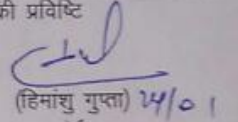 की प्रविष्टि
(हिमांशु गुप्ता) 24/01